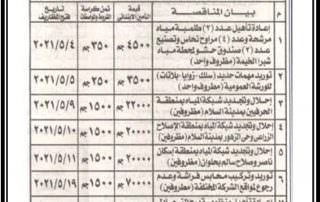 م
بيان المناقصة
قيمة
التأمين الابتدائى
ثمن كراسة
الشروط والمواصفات
تاريخ
فتح المظاريف
١
إعادة تأهيل عدد (٢) طلمبة مياه
مرشحة وعدد (٤) مراوح نحاس وتصنيع
عدد (٢) صندوق حشو لمحطة مياه
شبرا الخيمة (مظروف واحد)
٤٥٠٠ ج
٢٥٠ ج
٢٠٢١/٥/٤
٢
توريد مهمات حديد (سلك - زوايا - بلاتات)
للورشة العمومية (مظروف واحد)
٥٠٠٠ ج
٣٥٠ ج
٢٠٢١/٥/٥
إحلال وتجديد شبكة المياه بمنطقة
الحرفيين بحى السلام (مظروفين)
٢٢٠٠٠ ج
١٥٠٠ ج
٢٠٢١/٥/٩
إحلال وتجديد شبكة المياه بمنطقة الإصلاح
الزراعى وحى الزهور بحى السلام (مظروفين)
١٥٠٠ ج
٢٠٢١/٥/١٠
إحلال وتجديد شبكة المياه بمنطقة إسكان
ناصر وصلاح سالم بحلوان (مظروفين)
١٥٠٠ ج
٢٠٢١/٥/١١
٦
توريد وتركيب محابس فراشة وعدم
رجوع لمواقع الشركة المختلفة (مظروفين)
٧٠٠٠٠ ج
١٥٠٠ ج
٢٠٢١/٥/١٩